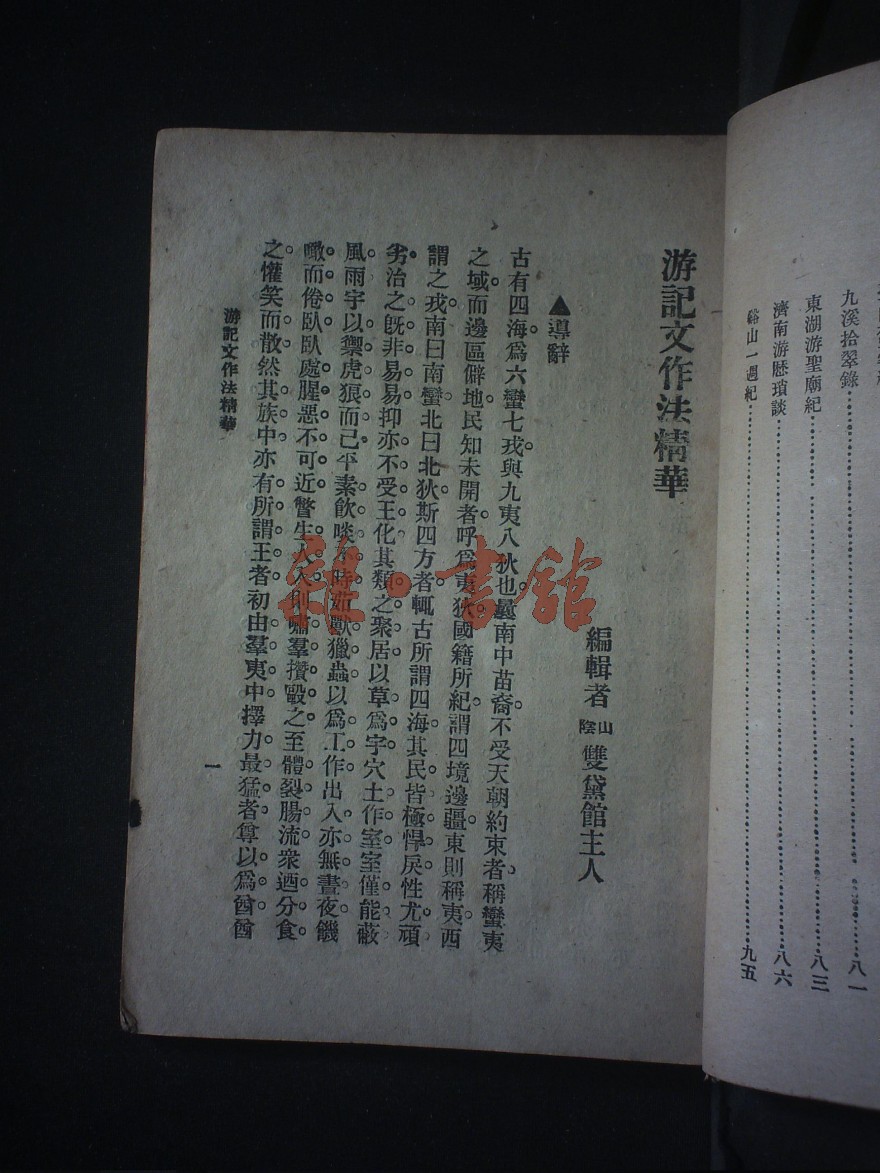 九溪拾翠錄……八一
東湖游聖廟紀……八三
濟南游歷瑣談……八六
谿山一週紀……九五
游記文作法精華
編輯者 山陰 雙黛館主人
▲導辭
古有四海。爲六蠻七戎與九夷八狄也。曩南中苗裔。不受天朝約束者。稱蠻夷
之域。而邊區僻地。民知未開者。呼爲夷狄。國籍所紀。謂四境邊疆。東則稱夷。西
謂之戎。南曰南蠻。北曰北狄。斯四方者。輒古所謂四海。其民皆極悍戾。性尤頑
劣。治之旣非易易。抑亦不受王化。其類之聚居。以草爲宇。穴土作室。室僅能蔽
風雨。宇以禦虎狼而已。平素飲啖不時。茹獸獵蟲以爲工作。出入亦無晝夜。饑
噉而倦臥。臥處腥惡不可近。瞥生人入。則嘯羣攢毆之。至體裂腸流。衆迺分食
之。懽笑而散。然其族中亦有所謂王者。初由羣夷中擇力最猛者。尊以爲酋。酋
游記文作法精華
一
雜·書館